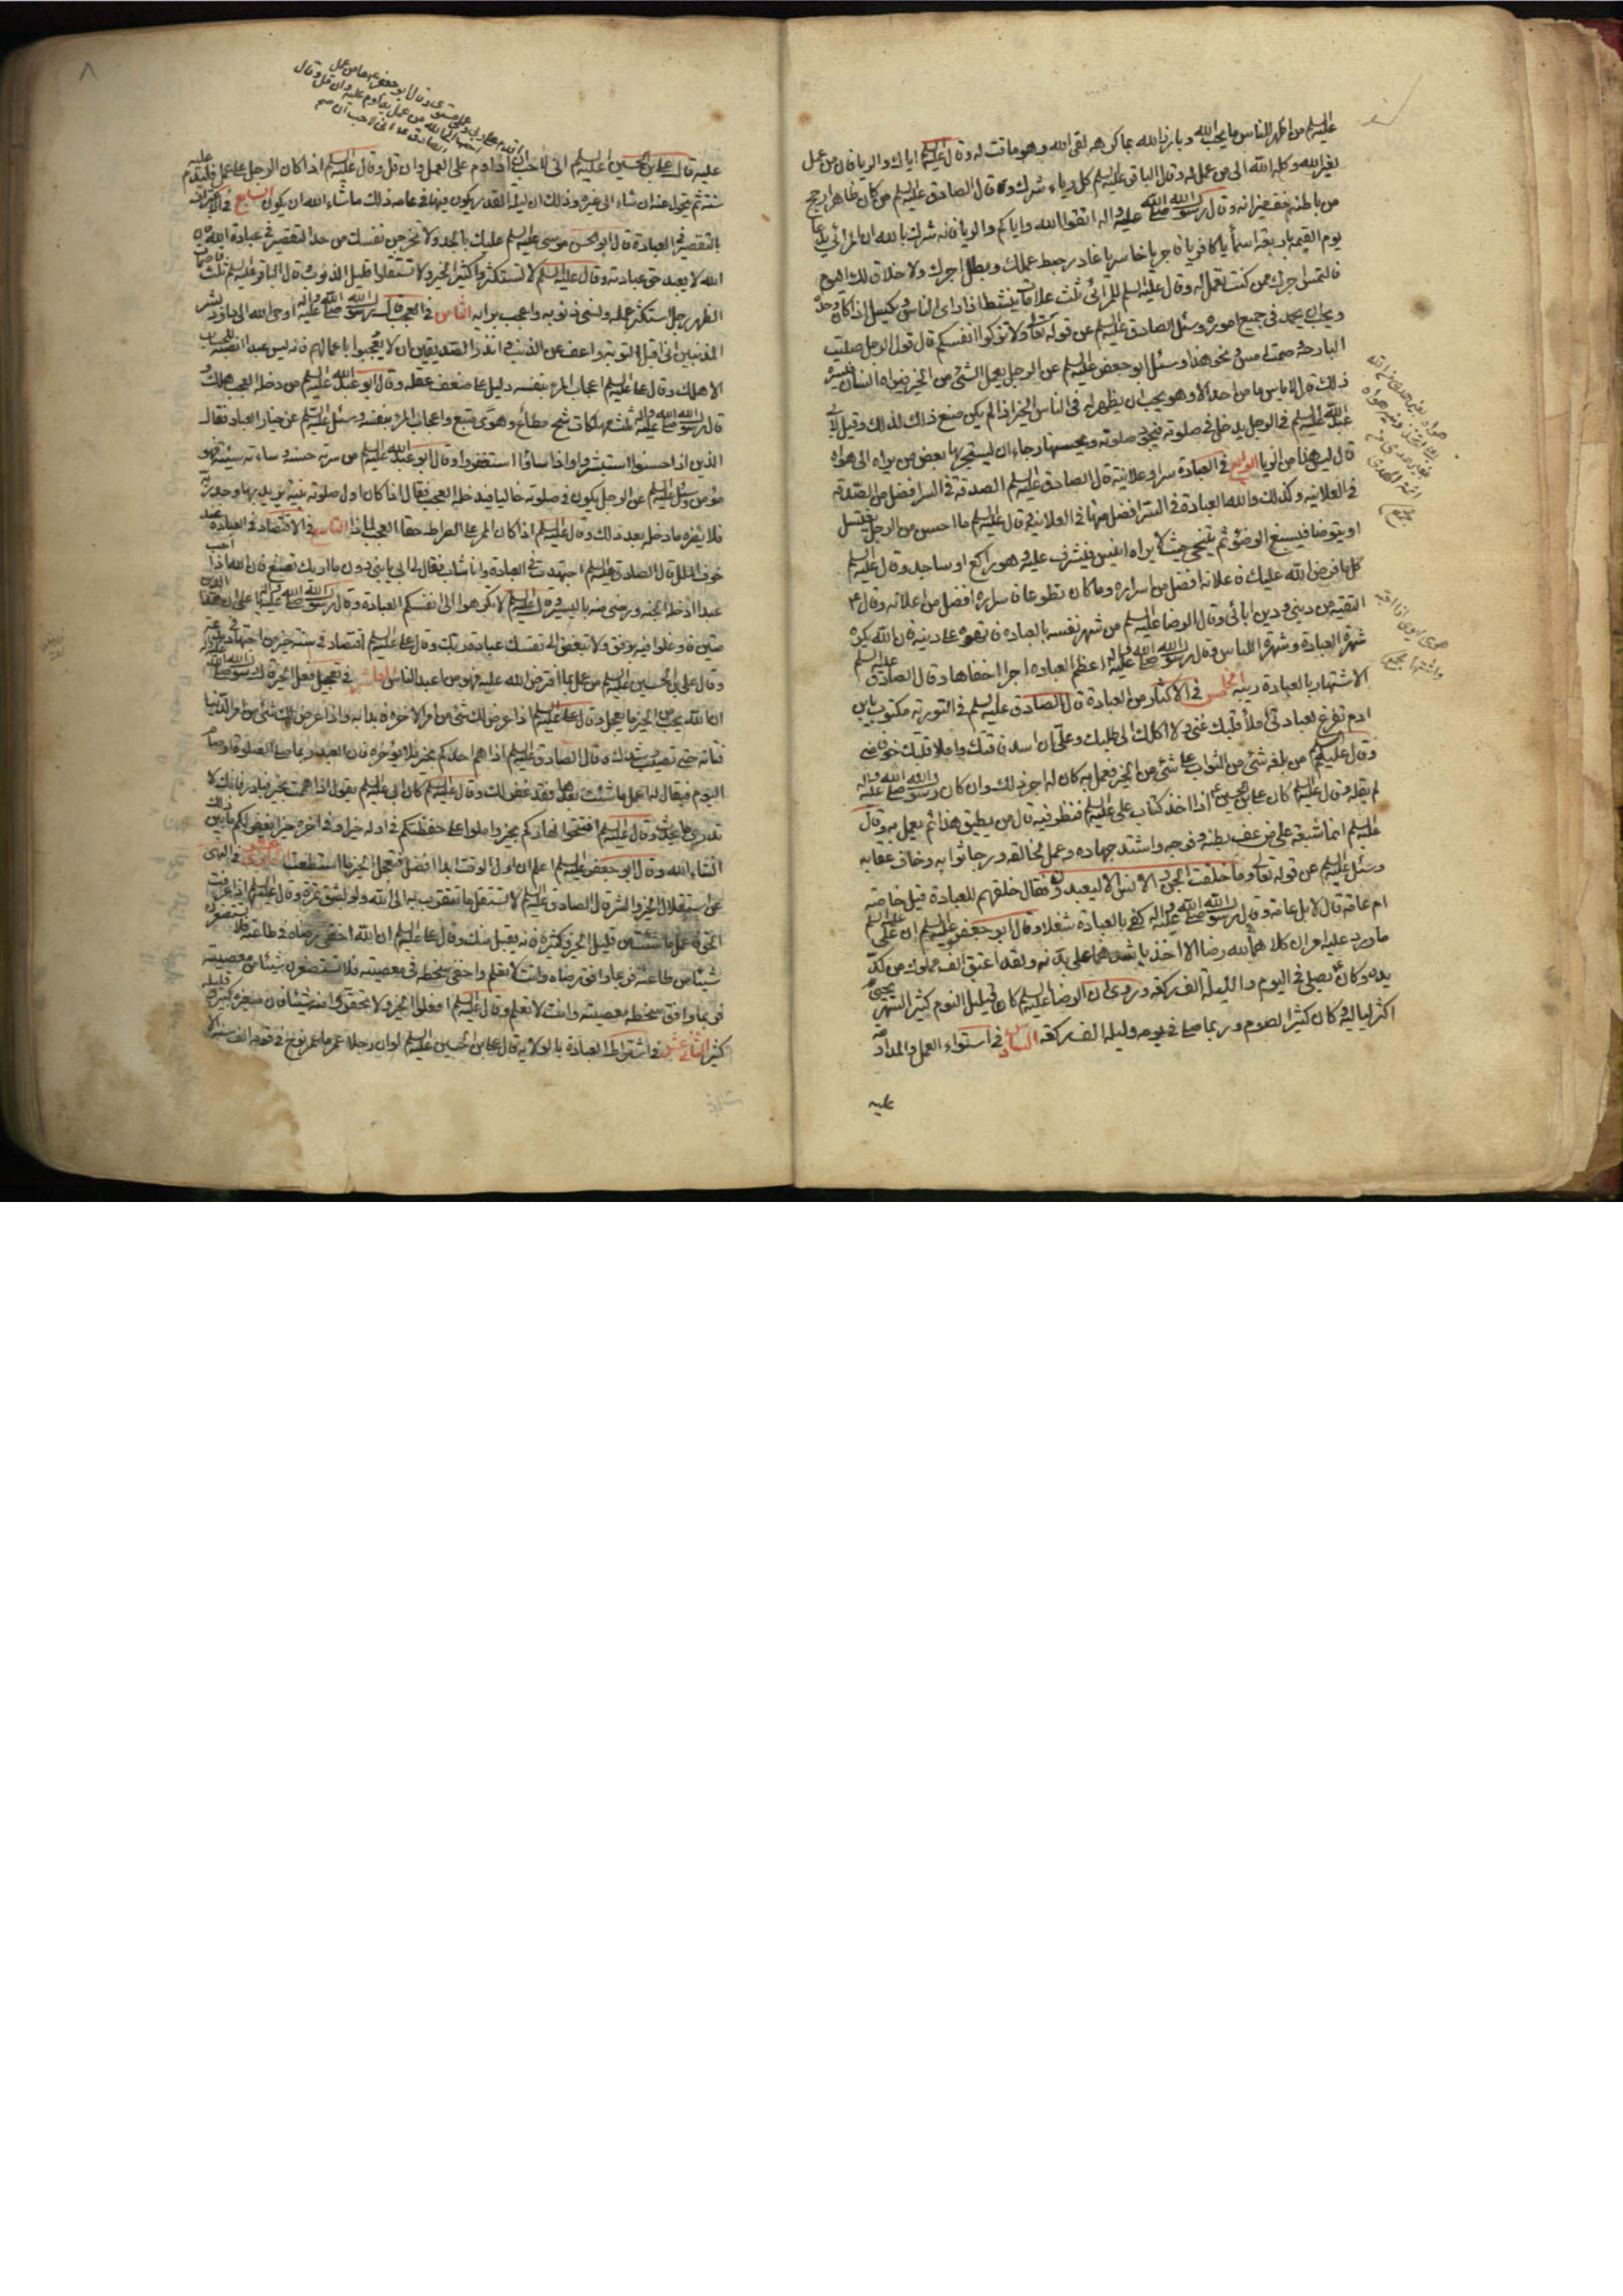 عليه السلم من اظهر للناس ما يحب الله وبارز الله بما كرهه لقى الله وهو ماقت له وقال عليه السلم اياك والريا فان من عمل
لغير الله وكله الله الى من عمل له وقال الباقر عليه السلم كل رياء شرك وقال الصادق عليه السلم من كان ظاهره ارجح
من باطنه خف ميزانه وقال رسول الله صلى الله عليه واله اتقوا الله واياكم والريا فانه شرك بالله ان المرائي يدعا
يوم القيمة باربعة اسماء يا كافر يا فاجر يا خاسر يا غادر حبط عملك وبطل اجرك ولا خلاق لك اليوم
فالتمس اجرك ممن كنت تعمل له وقال عليه السلم للمرائى ثلث علامات ينشط اذا راى الناس ويكسل اذا كان وحده
ويحب ان يحمد فى جميع اموره وسئل الصادق عليه السلم عن قوله تعالى ولا تزكوا انفسكم قال قول الرجل صليت
البارحة وصمت امس ونحو هذا وسئل ابو جعفر عليه السلم عن الرجل يعمل الشئ من الخير فيراه انسان فيسره
ذلك قال لا باس ما من احد الا وهو يحب ان يظهر له فى الناس الخير اذا لم يكن صنع ذلك لذلك وقيل لابى
عبد الله عليه السلم فى الرجل يدخل فى صلوته فيجود صلوته ويحسنها رجاء ان يستجر بها بعض من يراه الى هواه
قال ليس هذا من الريا الرابع فى العبادة سرا وعلانية قال الصادق عليه السلم الصدقة فى السر افضل من الصدقة
فى العلانيه وكذلك والله العبادة فى السر افضل منها فى العلانية وقال عليه السلم ما احسن من الرجل يغتسل
او يتوضا فيسبغ الوضوء ثم يتنحى حيث لا يراه انيس فيشرف عليه وهو راكع او ساجد وقال عليه السلم
كل ما فرض الله عليك فاعلانه افضل من اسراره وما كان تطوعا فاسراره افضل من اعلانه وقال ع
التقية من دينى ودين ابائى وقال الرضا عليه السلم من شهر نفسه بالعباده فاتهموه على دينه فان الله يكره
شهرة العبادة وشهرة اللباس وقال رسول الله صلى الله عليه واله اعظم العباده اجرا اخفاها وقال الصادق عليه السلم
الاشتهار بالعبادة ريبه الخامس فى الاكثار من العبادة قال الصادق عليه السلم فى التورية مكتوب يابن
ادم تفرغ لعبادتى املأ قلبك غنى ولا اكلك الى طلبك وعلى ان اسد فاقتك واملا قلبك خوفا منى
وقال عليه السلم من بلغه شئ من الثواب على شئ من الخير فعمل به كان له اجر ذلك وان كان رسول الله صلى الله عليه واله
لم يقله وقال عليه السلم كان على بن الحسين ع اذا اخذ كتاب على عليه السلم فنظر فيه قال من يطيق هذا ثم يعمل به وقال
عليه السلم انما شيعة على من عف بطنه وفرجه واشتد جهاده وعمل لخالقه ورجا ثوابه وخاف عقابه
وسئل عليه السلم عن قوله تعالى وما خلقت الجن والانس الا ليعبدون فقال خلقهم للعبادة قيل خاصة
ام عامة قال لا بل عامة وقال رسول الله صلى الله عليه واله كفى بالعبادة شغلا وقال ابو جعفر عليه السلم ان على عليه السلم
ما ورد عليه امران كلاهما لله رضا الا اخذ باشدهما على بدنه ولقد اعتق الف مملوك من كد
يده وكان يصلى فى اليوم والليلة الف ركعة وروى ان الرضا عليه السلم كان قليل النوم كثير السهر يحيى
اكثر لياليه وكان كثير الصوم وربما صلى فى يومه وليله الف ركعة السادس فى استواء العمل والمداومة
عليه
عليه قال على بن الحسين عليه السلم انى لاحب ان اداوم على العمل وان قل وقال عليه السلم اذا كان الرجل على عمل فليدم عليه
سنة ثم يتحول عنه ان شاء الى غيره وذلك ان ليلة القدر يكون فيها فى عامه ذلك ما شاء الله ان يكون السابع فى الاعتراف
بالتقصير فى العبادة قال ابو الحسن موسى عليه السلم عليك بالجد ولا تخرجن نفسك من حد التقصير فى عبادة الله فان
الله لا يعبد حق عبادته وقال عليه السلم لا تستكثروا كثير الخير ولا تستقلوا قليل الذنوب وقال الباقر عليه السلم ثلث قاصمات
الظهر رجل استكثر عمله ونسى ذنوبه واعجب برايه الثامن فى العجب قال رسول الله صلى الله عليه واله اوحى الله الى داود بشر
المذنبين انى اقبل التوبة واعف عن الذنب وانذر الصديقين ان لا يعجبوا باعمالهم فانه ليس عبدا انصبه للحساب
الا هلك وقال على عليه السلم اعجاب المرء بنفسه دليل على ضعف عقله وقال ابو عبد الله عليه السلم من دخله العجب هلك و
قال رسول الله صلى الله عليه واله ثلث مهلكات شح مطاع وهوى متبع واعجاب المرء بنفسه وسئل عليه السلم عن خيار العباد فقال
الذين اذا احسنوا استبشروا واذا ساؤا استغفروا وقال ابو عبد الله عليه السلم من سرته حسنه وساءته سيئته فهو
مؤمن وسئل عليه السلم عن الرجل يكون فى صلوته خاليا فيدخله العجب فقال اذا كان اول صلوته بنية يريد بها وجه ربه
فلا يضره ما دخله بعد ذلك وقال عليه السلم اذا كان الممر على الصراط حقا فالعجب لماذا التاسع فى الاقتصاد فى العبادة عند
خوف الملل قال الصادق عليه السلم اجتهدت فى العبادة وانا شاب فقال لى ابى يا بنى دون ما اراك تصنع فان الله اذا احب
عبدا ادخله الجنه ورضى منه باليسير وقال عليه السلم لا تكرهوا الى انفسكم العبادة وقال رسول الله صلى الله عليه واله يا على ان هذا الدين
متين فاوغلوا فيه برفق ولا تبغض الى نفسك عبادة ربك وقال على عليه السلم اقتصاد فى سنة خير من اجتهاد فى بدعة
وقال على بن الحسين عليه السلم من عمل بما افترض الله عليه فهو من اعبد الناس العاشر فى تعجيل فعل الخير قال رسول الله صلى الله عليه واله
ان الله يحب من الخير ما يعجل وقال على عليه السلم اذا عرض لك شئ من امر الاخره فابدا به واذا عرض لك شئ من امر الدنيا
فتانه حتى تصيب رشدك وقال الصادق عليه السلم اذا هم احدكم بخير فلا يؤخره فان العبد ربما صلى الصلوة او صام
اليوم فيقال له اعمل ما شئت بعدها فقد غفر لك وقال عليه السلم كان ابى عليه السلم يقول اذا هممت بخير فبادر فانك لا
تدرى ما يحدث وقال عليه السلم افتتحوا نهاركم بخير واملوا على حفظتكم فى اوله خيرا وفى اخره خيرا يغفر لكم ما بين ذلك
انشاء الله وقال ابو جعفر عليه السلم اعلم ان اول الوقت ابدا افضل فتعجل الخير ما استطعت الحادى عشر فى النهى
عن استقلال الخير والشر قال الصادق عليه السلم لا تستقل ما تتقرب به الى الله ولو بشق تمرة وقال عليه السلم اذا عرفت
الحق فاعمل ما شئت من قليل الخير وكثيره فانه يقبل منك وقال على عليه السلم ان الله اخفى رضاه فى طاعته فلا تستصغرن
شيئا من طاعته فربما وافق رضاه وانت لا تعلم واخفى سخطه فى معصيته فلا تستصغرن شيئا من معصيته
فربما وافق سخطه معصيته وانت لا تعلم وقال عليه السلم افعلوا الخير ولا تحقروا منه شيئا فان صغيره كبير وقليله
كثير الثانى عشر فى اشتراط العبادة بالولاية قال على بن الحسين عليه السلم لو ان رجلا عمر ما عمر نوح فى قومه الف سنة الا